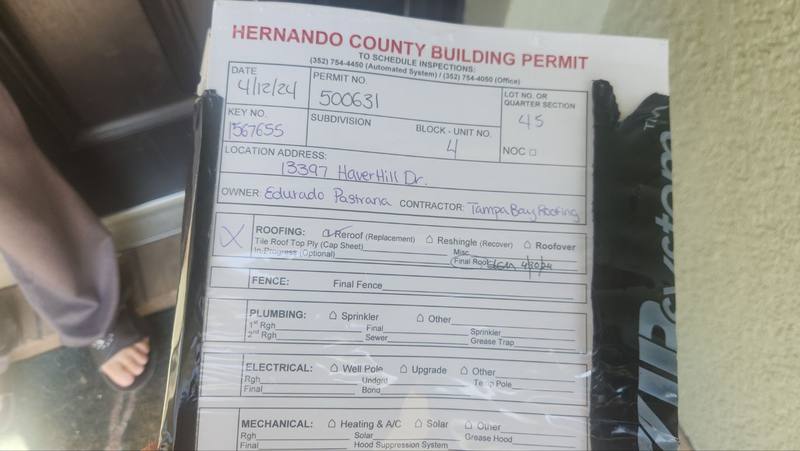 HERNANDO COUNTY BUILDING PERMIT
TO SCHEDULE INSPECTIONS:
(352) 754-4450 (Automated System) / (352) 754-4050 (Office)
DATE
4/12/24
PERMIT NO.
500631
LOT NO. OR
QUARTER SECTION
45
KEY NO.
1567655
SUBDIVISION
BLOCK - UNIT NO.
4
NOC
LOCATION ADDRESS:
13397 HaverHill Dr.
OWNER: Edurado Pastrana CONTRACTOR: Tampa Bay Roofing
X
ROOFING: Reroof (Replacement) Reshingle (Recover) Roofover
Tile Roof Top Ply (Cap Sheet) Misc.
In-Progress (Optional) Final Roof 4/30/24
FENCE: Final Fence
PLUMBING: Sprinkler Other
1st Rgh Final Sprinkler
2nd Rgh Sewer Grease Trap
ELECTRICAL: Well Pole Upgrade Other
Rgh Undgrd Temp Pole
Final Bond
MECHANICAL: Heating & A/C Solar Other
Rgh Solar Grease Hood
Final Hood Suppression System
ZIP System™